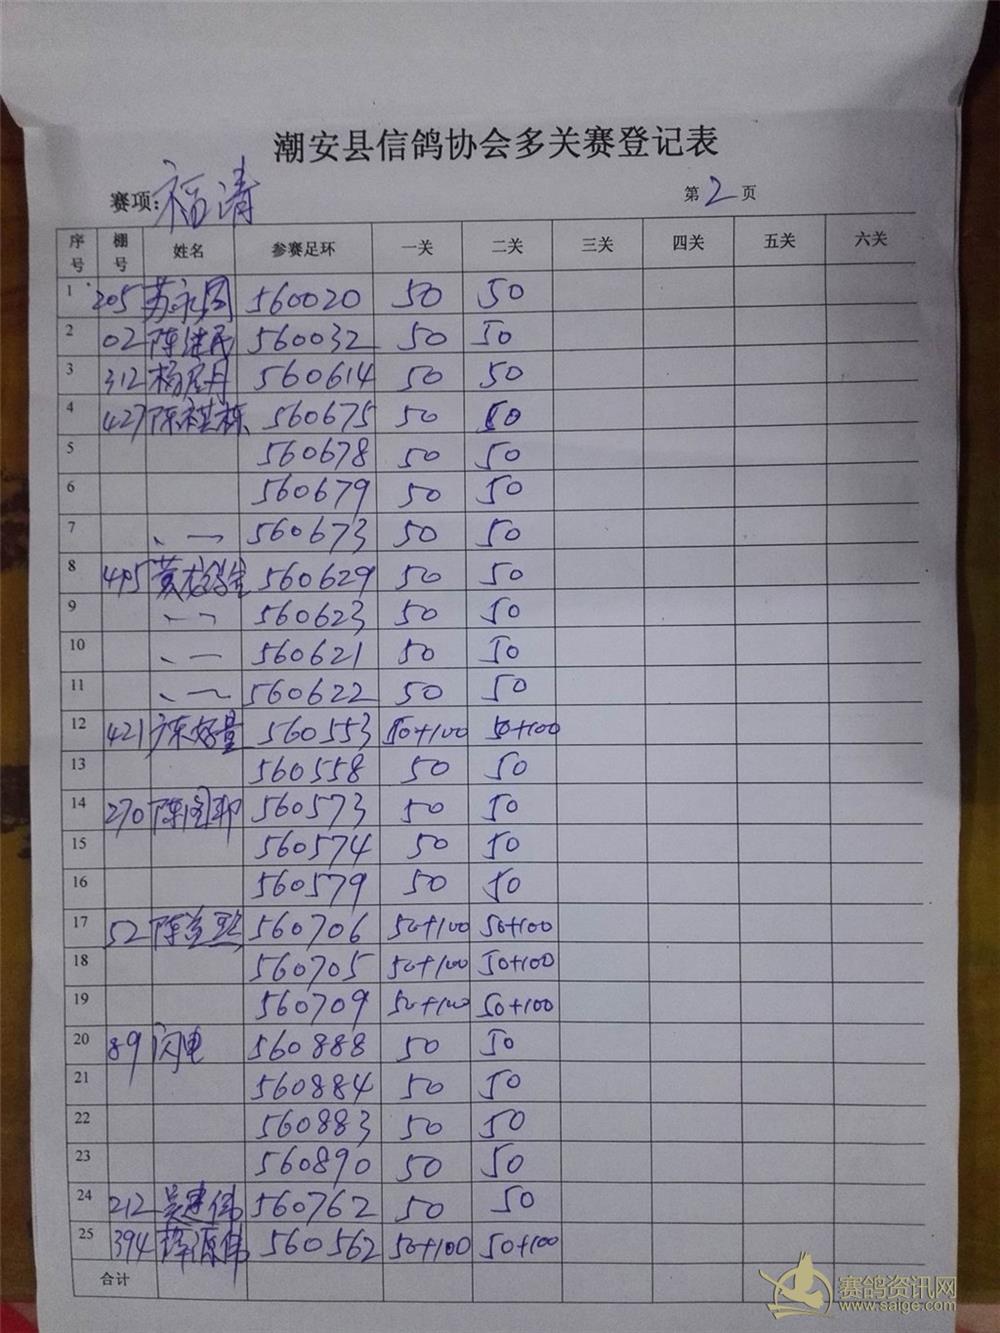 潮安县信鸽协会多关赛登记表
赛项:福清 第2页
序号 棚号 姓名 参赛足环 一关 二关 三关 四关 五关 六关
1 205 苏 560020 50 50
2 02 陈建民 560032 50 50
3 312 杨 560614 50 50
4 427 陈祺栋 560675 50 50
5 560678 50 50
6 560679 50 50
7 560673 50 50
8 495 黄 560629 50 50
9 560623 50 50
10 560621 50 50
11 560622 50 50
12 421 560553 50+100 50+100
13 560558 50 50
14 270 陈 560573 50 50
15 560574 50 50
16 560579 50 50
17 52 陈 560706 50+100 50+100
18 560705 50+100 50+100
19 560709 50+100 50+100
20 89 闪电 560888 50 50
21 560884 50 50
22 560883 50 50
23 560890 50 50
24 212 吴建伟 560762 50 50
25 394 源伟 560562 50+100 50+100
合计
赛鸽资讯网
www.saige.com